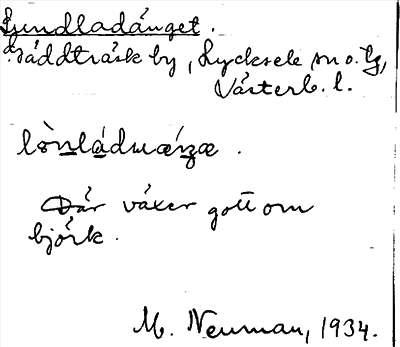 Lundladänget.
Bäddträsk by, Lycksele sn o. tg,
Västerb. l.
lò̱nládwæ̀ŋæ.
Där växer gott om
björk.
M. Neuman, 1934.